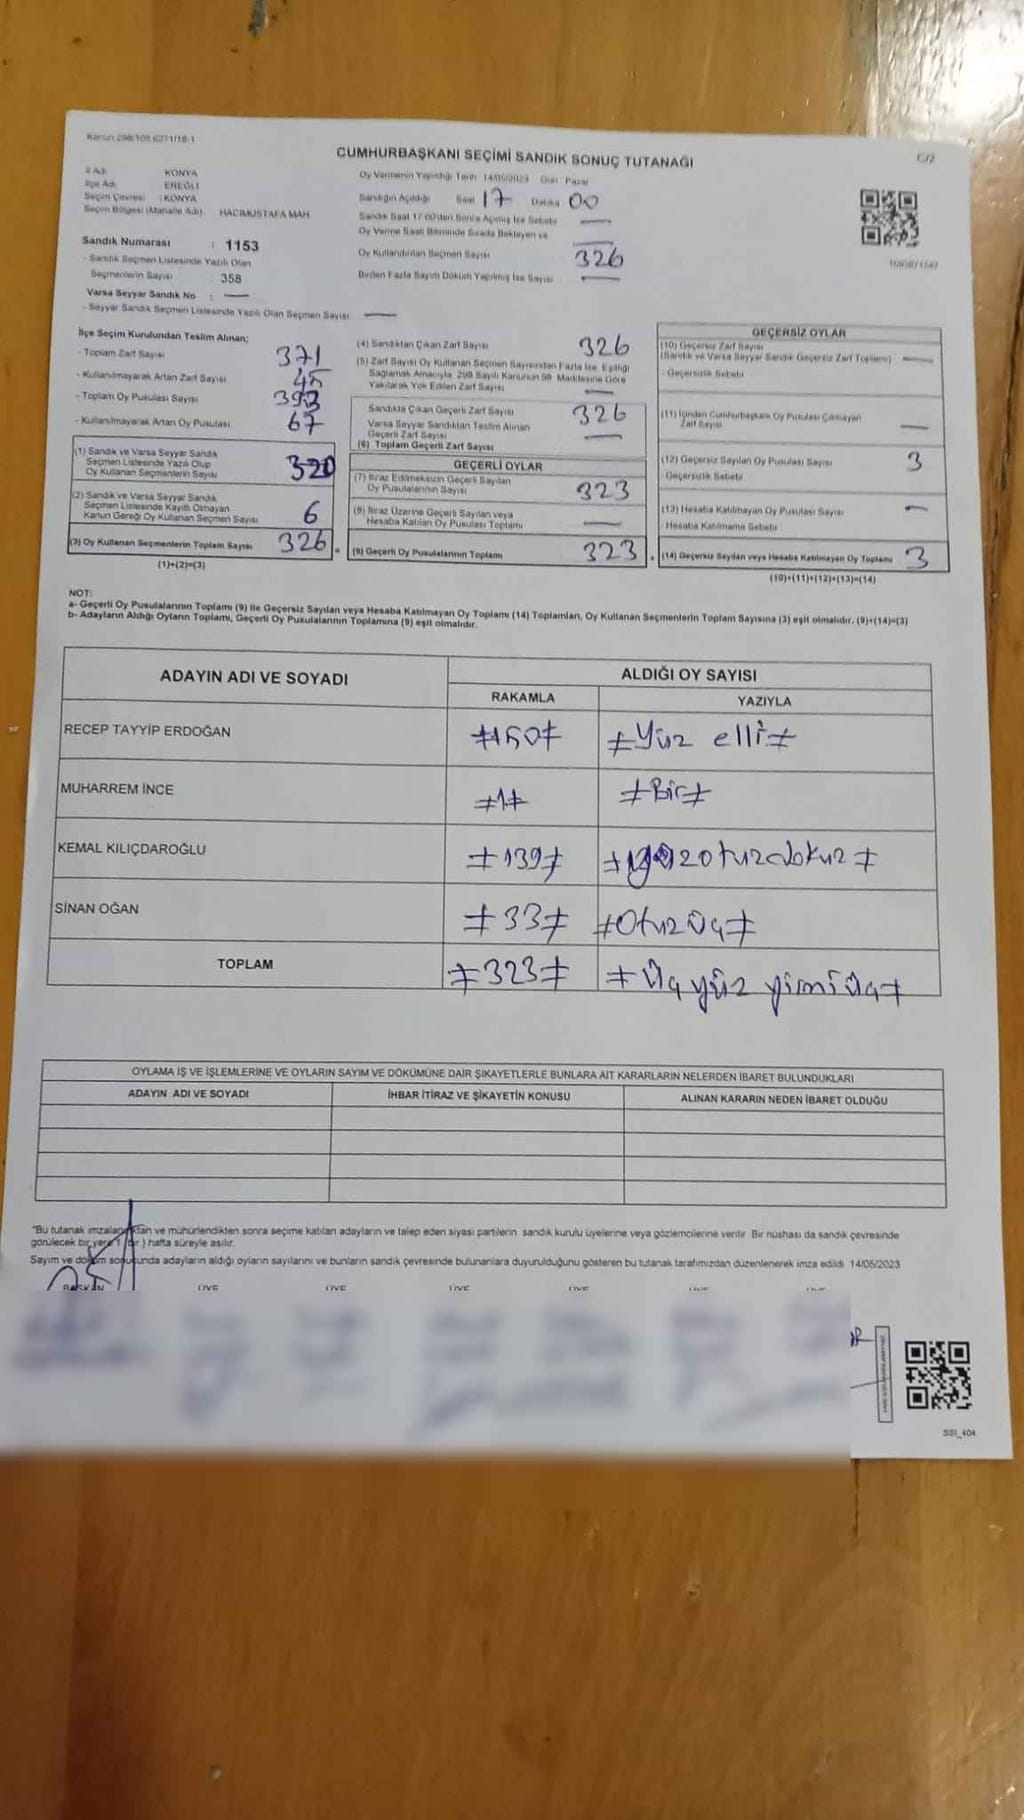 Kanun 298/105 6271/18-1
CUMHURBAŞKANI SEÇİMİ SANDIK SONUÇ TUTANAĞI
C/2
İl Adı KONYA
İlçe Adı EREĞLİ
Seçim Çevresi : KONYA
Seçim Bölgesi (Mahalle Adı) HACIMUSTAFA MAH
Sandık Numarası : 1153
- Sandık Seçmen Listesinde Yazılı Olan
Seçmenlerin Sayısı 358
Varsa Seyyar Sandık No : —
- Seyyar Sandık Seçmen Listesinde Yazılı Olan Seçmen Sayısı —
Oy Vermenin Yapıldığı Tarih 14/05/2023 Gün Pazar
Sandığın Açıldığı Saat 17 Dakika 00
Sandık Saat 17:00'den Sonra Açılmış İse Sebebi —
Oy Verme Saati Bitiminde Sırada Bekleyen ve —
Oy Kullandırılan Seçmen Sayısı 326
Birden Fazla Sayım Döküm Yapılmış İse Sayısı —
İlçe Seçim Kurulundan Teslim Alınan;
- Toplam Zarf Sayısı 371
- Kullanılmayarak Artan Zarf Sayısı 45
- Toplam Oy Pusulası Sayısı 393
- Kullanılmayarak Artan Oy Pusulası 67
(1) Sandık ve Varsa Seyyar Sandık
Seçmen Listesinde Yazılı Olup
Oy Kullanan Seçmenlerin Sayısı 320
(2) Sandık ve Varsa Seyyar Sandık
Seçmen Listesinde Kayıtlı Olmayan
Kanun Gereği Oy Kullanan Seçmen Sayısı 6
(3) Oy Kullanan Seçmenlerin Toplam Sayısı 326
(1)+(2)=(3)
(4) Sandıktan Çıkan Zarf Sayısı 326
(5) Zarf Sayısı Oy Kullanan Seçmen Sayısından Fazla İse, Eşitliği
Sağlamak Amacıyla, 298 Sayılı Kanunun 98. Maddesine Göre
Yakılarak Yok Edilen Zarf Sayısı —
Sandıkta Çıkan Geçerli Zarf Sayısı 326
Varsa Seyyar Sandıktan Teslim Alınan
Geçerli Zarf Sayısı —
(6) Toplam Geçerli Zarf Sayısı
GEÇERLİ OYLAR
(7) İtiraz Edilmeksizin Geçerli Sayılan
Oy Pusulalarının Sayısı 323
(8) İtiraz Üzerine Geçerli Sayılan veya
Hesaba Katılan Oy Pusulası Toplamı —
= (9) Geçerli Oy Pusulalarının Toplamı 323
GEÇERSİZ OYLAR
(10) Geçersiz Zarf Sayısı
(Sandık ve Varsa Seyyar Sandık Geçersiz Zarf Toplamı) —
- Geçersizlik Sebebi
(11) İçinden Cumhurbaşkanı Oy Pusulası Çıkmayan
Zarf Sayısı —
(12) Geçersiz Sayılan Oy Pusulası Sayısı 3
- Geçersizlik Sebebi
(13) Hesaba Katılmayan Oy Pusulası Sayısı —
- Hesaba Katılmama Sebebi
+ (14) Geçersiz Sayılan veya Hesaba Katılmayan Oy Toplamı 3
(10)+(11)+(12)+(13)=(14)
NOT:
a- Geçerli Oy Pusulalarının Toplamı (9) ile Geçersiz Sayılan veya Hesaba Katılmayan Oy Toplamı (14) Toplamları, Oy Kullanan Seçmenlerin Toplam Sayısına (3) eşit olmalıdır. (9)+(14)=(3)
b- Adayların Aldığı Oyların Toplamı, Geçerli Oy Pusulalarının Toplamına (9) eşit olmalıdır.
ADAYIN ADI VE SOYADI ALDIĞI OY SAYISI
RAKAMLA YAZIYLA
RECEP TAYYİP ERDOĞAN ≠150≠ ≠Yüz elli≠
MUHARREM İNCE ≠1≠ ≠Bir≠
KEMAL KILIÇDAROĞLU ≠139≠ otuzdokuz≠
SİNAN OĞAN ≠33≠ ≠Otuzüç≠
TOPLAM ≠323≠ ≠Üçyüz yirmiüç≠
OYLAMA İŞ VE İŞLEMLERİNE VE OYLARIN SAYIM VE DÖKÜMÜNE DAİR ŞİKAYETLERLE BUNLARA AİT KARARLARIN NELERDEN İBARET BULUNDUKLARI
ADAYIN ADI VE SOYADI İHBAR İTİRAZ VE ŞİKAYETİN KONUSU ALINAN KARARIN NEDEN İBARET OLDUĞU
"Bu tutanak imzalandıktan ve mühürlendikten sonra seçime katılan adayların ve talep eden siyasi partilerin sandık kurulu üyelerine veya gözlemcilerine verilir Bir nüshası da sandık çevresinde
görülecek bir yere 1 (bir ) hafta süreyle asılır.
Sayım ve döküm sonucunda adayların aldığı oyların sayılarını ve bunların sandık çevresinde bulunanlara duyurulduğunu gösteren bu tutanak tarafımızdan düzenlenerek imza edildi 14/05/2023
BAŞKAN ÜYE ÜYE ÜYE ÜYE ÜYE ÜYE
SSI_404